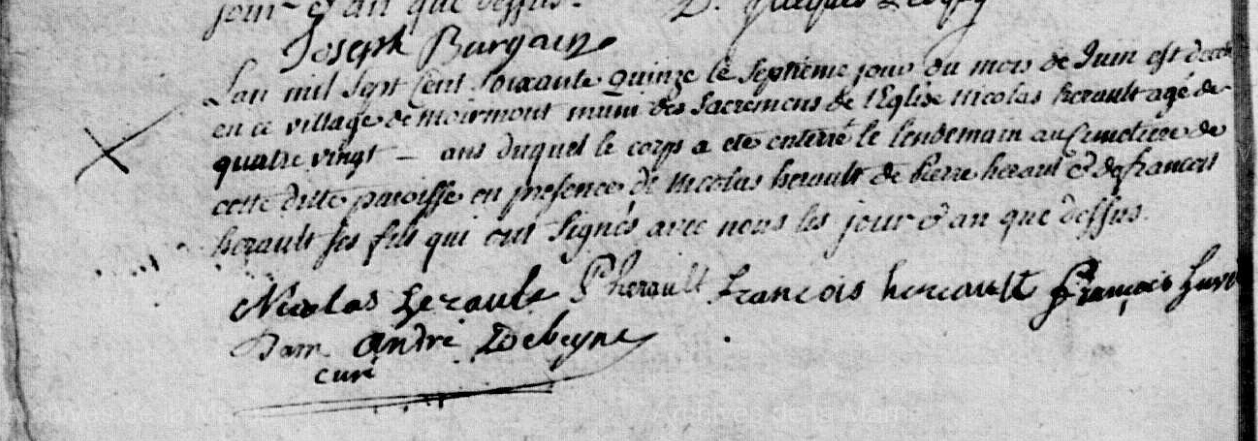 jour et an que dessus. D. Jacques
Joseph Burgain
L'an mil sept cent soixante quinze le septieme jour du mois de Juin est decede
en ce village de moirmont muni des sacremens de l'Eglise Nicolas herault agé de
quatre vingt – ans duquel le corps a eté enterré le lendemain au Cemetiere de
cette ditte paroisse en presence de Nicolas herault de pierre herault & de francois
herault ses fils qui ont signés avec nous les jour & an que dessus.
Nicolas herault P herault francois herault François
Dom André Debeyne
curé
Archives de la Marne Archives de la Marne